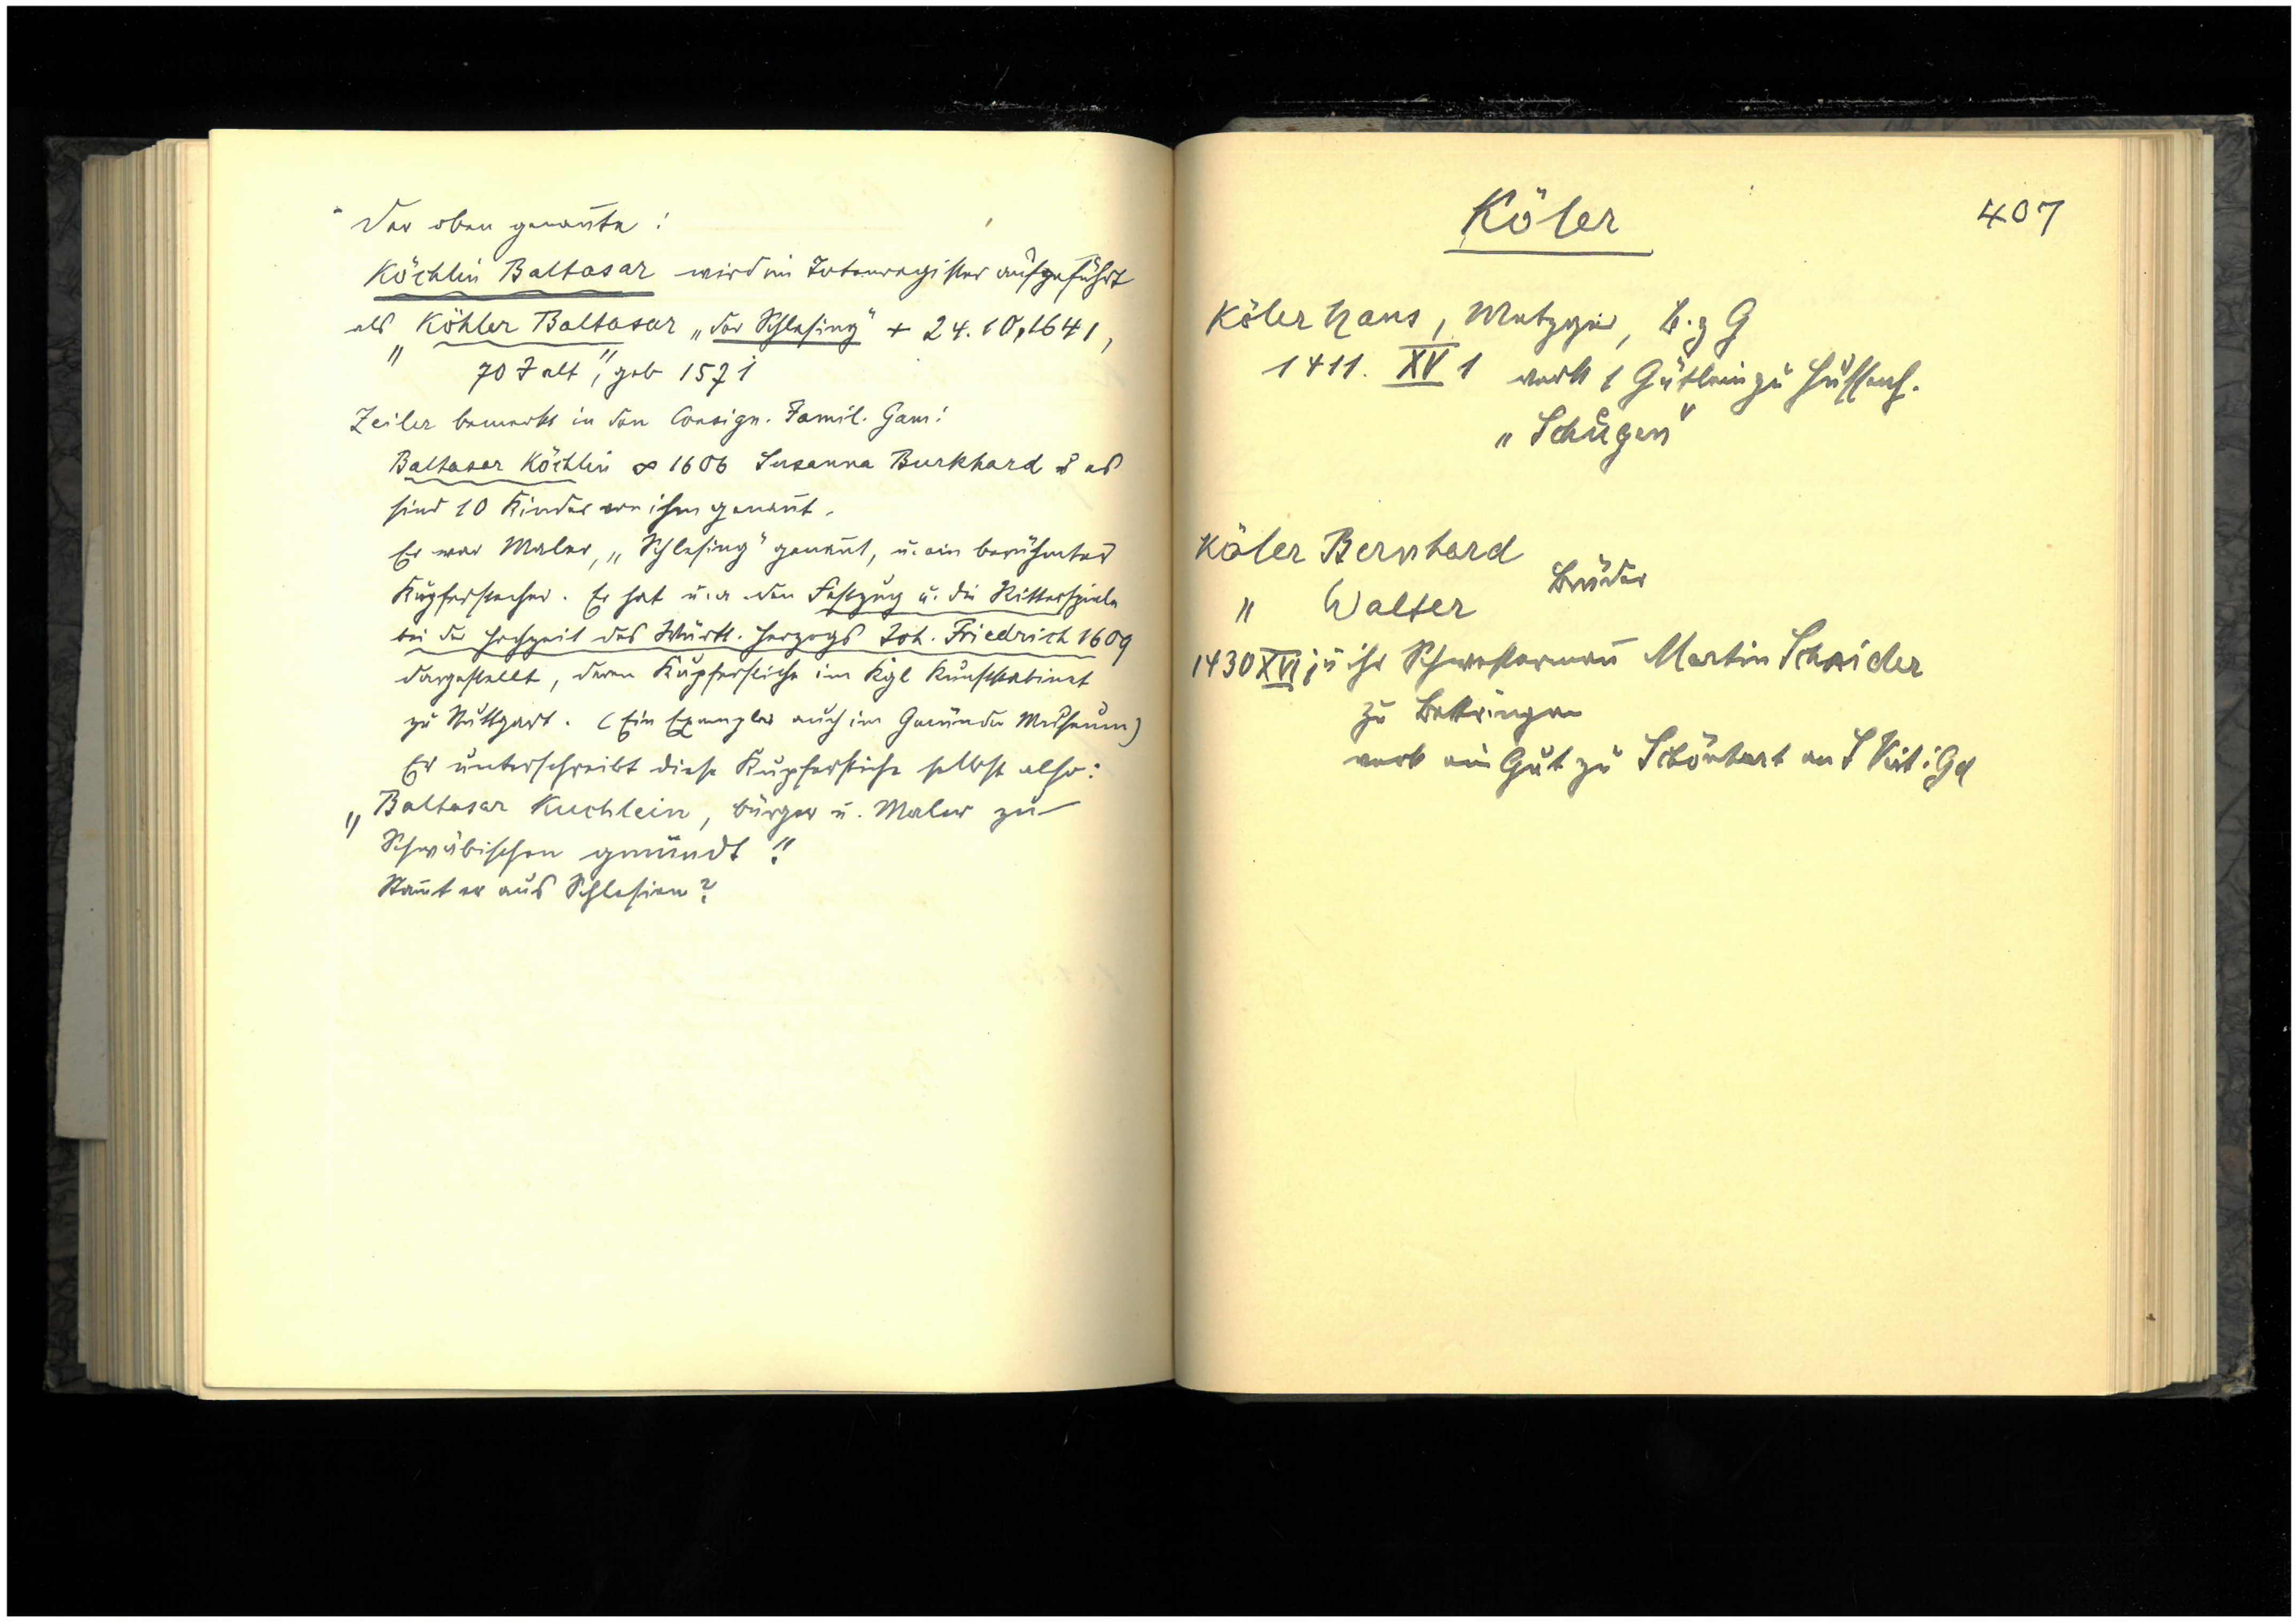 Der oben genannte:
Köchlin Baltasar wird im Totenregister aufgeführt
als "Köhler Baltasar „der Schlesing" + 24.10.1641,
70 J alt", geb 1571
Zeiler bemerkt in den Consign. Famil. Gam:
Baltasar Köchlin ∞ 1606 Susanna Burkhard u es
sind 10 Kinder von ihm genannt.
Er war Maler, „Schlesing" genannt, u. ein berühmter
Kupferstecher. Er hat u. a. den Festzug u. die Ritterspiele
bei der Hochzeit des Württ. Herzogs Joh. Friedrich 1609
dargestellt, deren Kupferstiche im Kgl Kunstkabinet
zu Stuttgart. (Ein Exemplar auch im Gmünder Museum)
Er unterschreibt diese Kupferstiche selbst also:
„Baltasar Kuchlein, bürger u. Maler zu
Schwäbischen gmündt."
Stamt er aus Schlesien?
Köler
407
Köler Hans, Metzger, B. z G
1411. XV 1 verk 1 Gütlein zu Hussenh.
„Schugen"
Köler Bernhard
" Walter Brüder
1430 XVI ; u ihr Schwestermann Martin Schnider
zu Bettringen
verk ein Gut zu Schönhart an S Vit i Gd